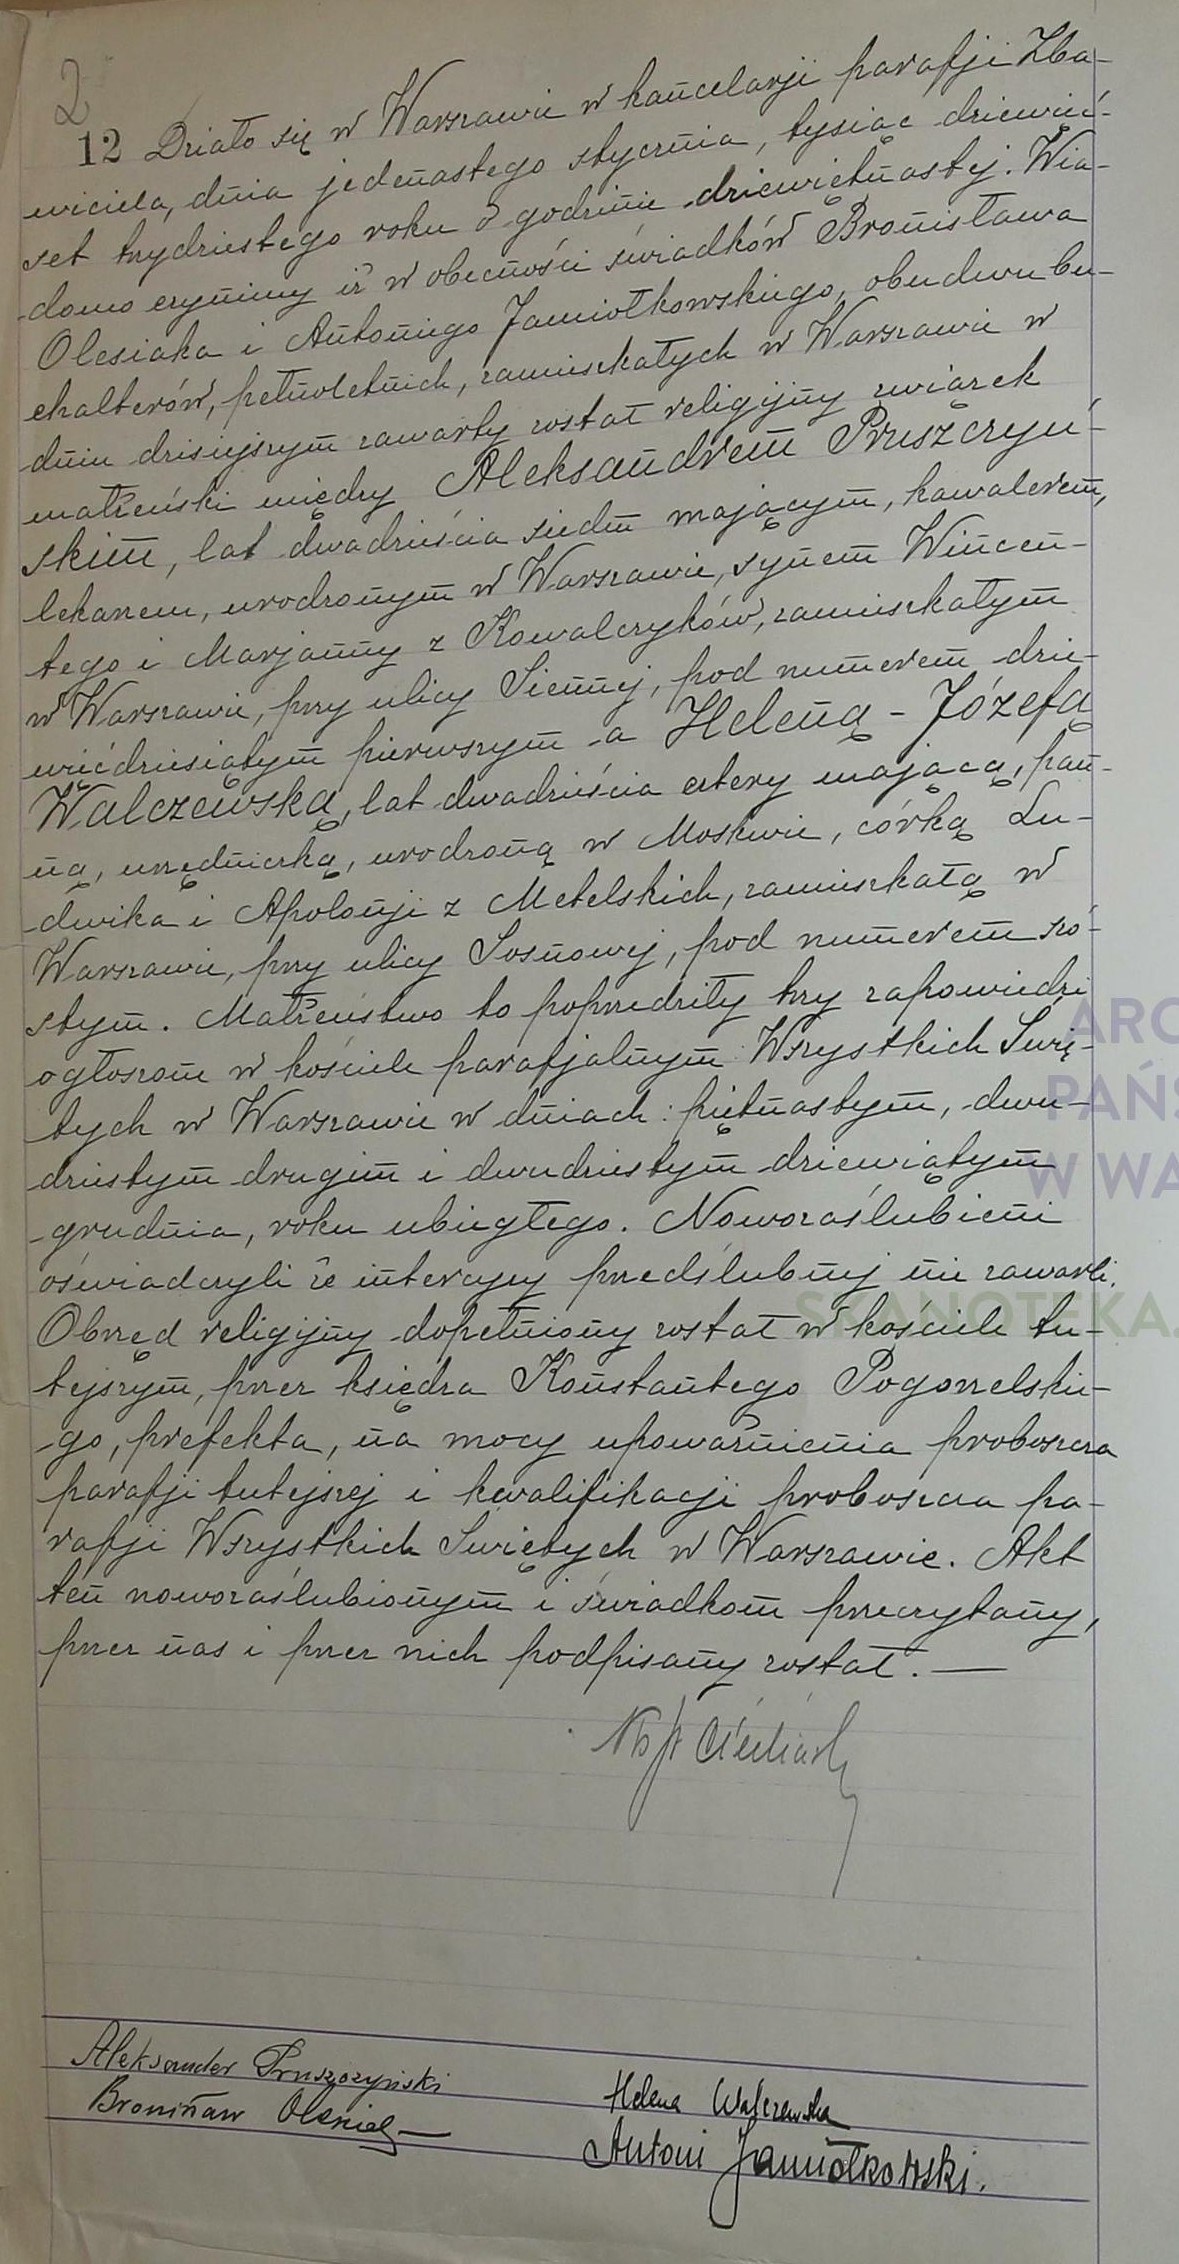 2
12 Działo się w Warszawie w kancelarji parafji Zba-
wiciela, dnia jedenastego stycznia, tysiąc dziewięć-
set trzydziestego roku o godzinie dziewiętnastej. Wia-
domo czynimy iż w obecności świadków Bronisława
Olesiaka i Antoniego Jamiołkowskiego, obudwu bu-
chalterów, pełnoletnich, zamieszkałych w Warszawie w
dniu dzisiejszym zawarty został religijny związek
małżeński między Aleksandrem Pruszczyń-
skim, lat dwadzieścia siedm mającym, kawalerem,
lekarzem, urodzonym w Warszawie, synem Wincen-
tego i Marjanny z Kowalczyków, zamieszkałym
w Warszawie, przy ulicy Siennej, pod numerem dzie-
więćdziesiątym pierwszym a Heleną - Józefą
Walczewską, lat dwadzieścia cztery mającą, pan-
ną, urzędniczką, urodzoną w Moskwie, córką Lu-
dwika i Apolonji z Metelskich, zamieszkałą w
Warszawie, przy ulicy Sosnowej, pod numerem szó-
stym. Małżeństwo to poprzedziły trzy zapowiedzi
ogłoszone w kościele parafjalnym Wszystkich Świę-
tych w Warszawie w dniach: piętnastym, dwu-
dziestym drugim i dwudziestym dziewiątym
grudnia, roku ubiegłego. Nowozaślubieni
oświadczyli że intercyzy przedślubnej nie zawarli.
Obrzęd religijny dopełniony został w kościele tu-
tejszym, przez księdza Konstantego Pogorzelskie-
go, prefekta, na mocy upoważnienia proboszcza
parafji tutejszej i kwalifikacji proboszcza pa-
rafji Wszystkich Świętych w Warszawie. Akt
ten nowozaślubionym i świadkom przeczytany,
przez nas i przez nich podpisany został. —
Aleksander Pruszczyński
Helena Walczewska
Bronisław Olesiak
Antoni Jamiołkowski.
ARC
PAŃS
W WA
SKANOTEKA.